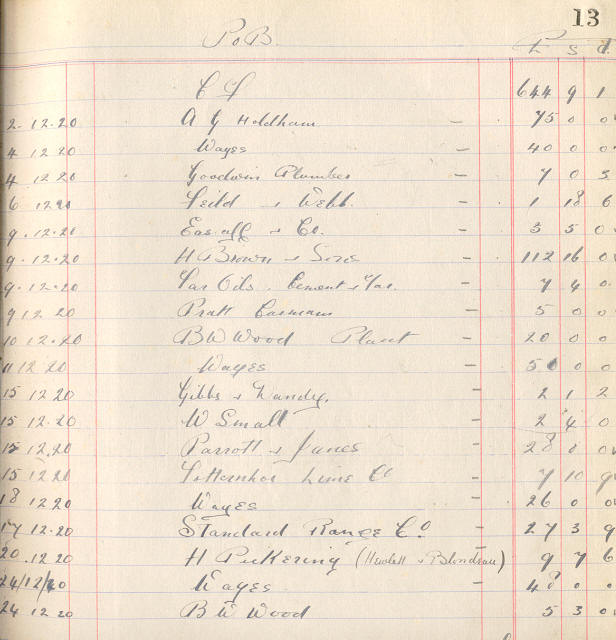 13
P o B.
£ s d.
644 9 1
2.12.20 A G Holdham – 75 0 0
4 12 20 Wages – 40 0 0
4 12 20 Goodwin Plumber – 7 0 3
6 12 20 Feild & Webb. – 1 18 6
9.12.20 & Co. – 3 5 0
9.12.20 H Brown & Sons – 112 16 0
9.12.20 Tar Oils. Cement & Tar. – 7 4 0
9 12 20 Pratt – 5 0 0
10 12.20 B W Wood Plant – 20 0 0
11 12 20 Wages – 5 0 0
15 12 20 Gibbs & Dandy. – 2 1 2
15 12.20 W Small – 2 4 0
15 12.20 Parrott & Janes – 28 0 0
15 12 20 Totternhoe Lime Co – 7 10 9
18 12 20 Wages – 26 0 0
17 12.20 Standard Range Co – 27 3 9
20.12 20 H Pickering (Hewlett & Blondeau) 9 7 6
24/12/20 Wages – 48 0 0
24 12 20 B W Wood 5 3 0